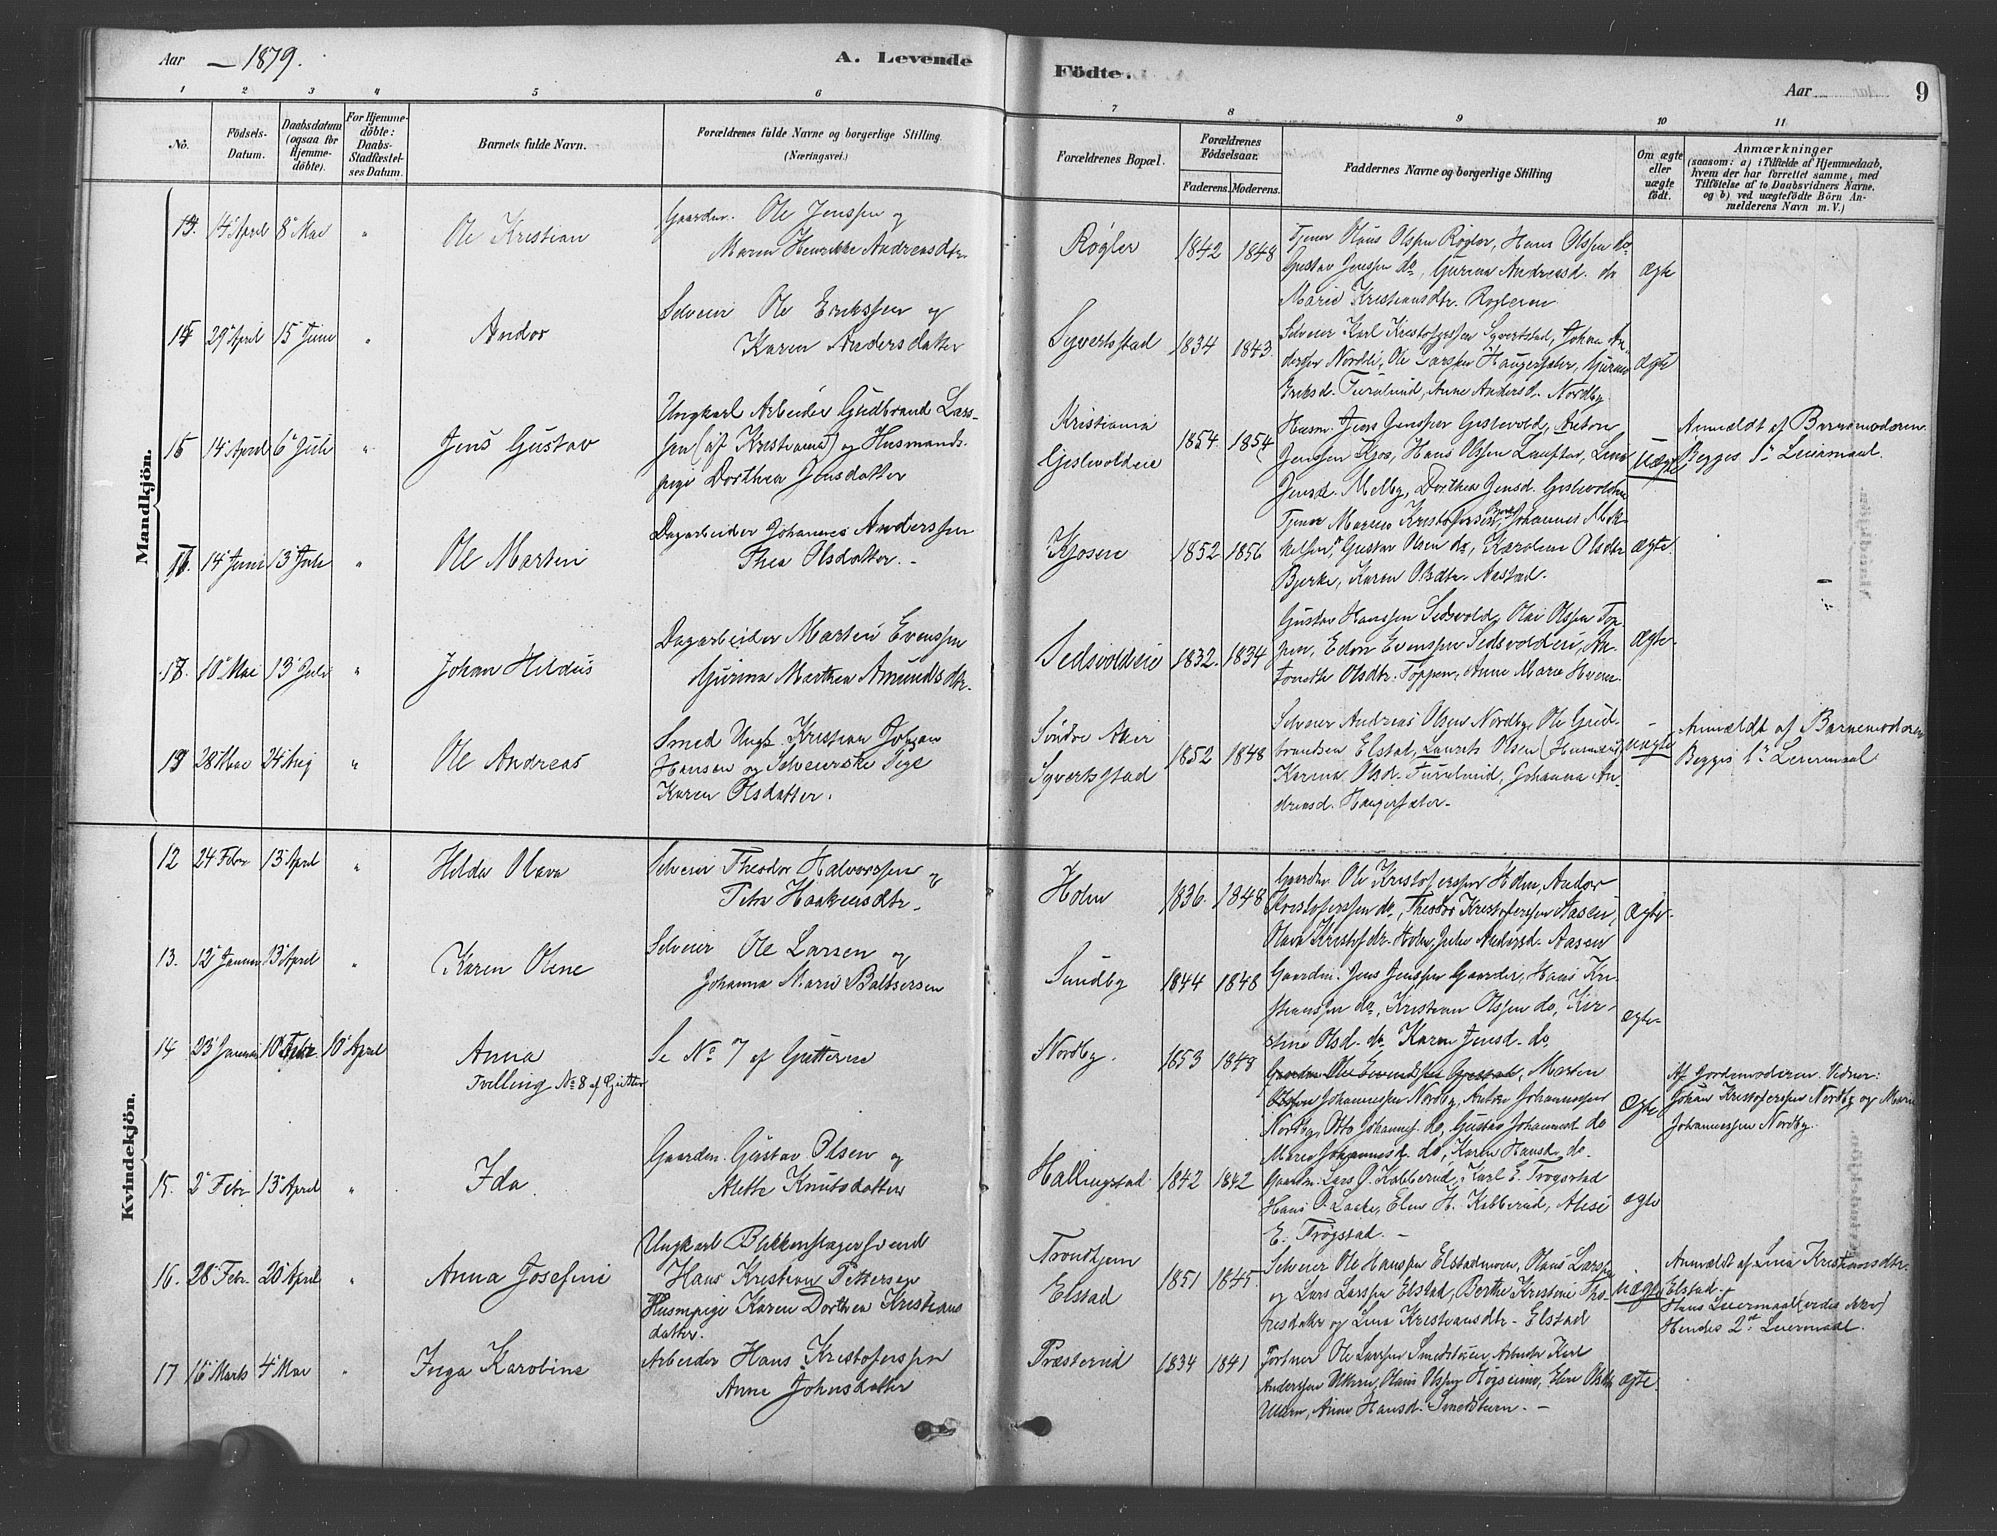 Aar — 1879.
A. Levende Födte.
Aar
9
1 2 3 4 5 6 7 8 9 10 11
No.
Födsels-Datum.
Daabsdatum (ogsaa for Hjemme-döbte).
For Hjemme-döbte: Daabs-Stadfæstel-ses Datum.
Barnets fulde Navn.
Forældrenes fulde Navne og borgerlige Stilling. (Næringsvei.)
Forældrenes Bopæl.
Forældrenes Födselsaar.
Faderens. Moderens.
Faddernes Navne og borgerlige Stilling
Om ægte eller uægte födt.
Anmærkninger
(saasom: a) i Tilfælde af Hjemmedaab, hvem der har forrettet samme, med Tilföielse af to Daabsvidners Navne, og b) ved uægtefödte Börn An-melderens Navn m. V.)
Mandkjön.
14 April 8 Mai " Ole Kristian
Gaardm. Ole Jenssen og
Maren Henrikke Andreasdtr.
Røgler 1842 1848
Tjener Olaus Olssen Røgler, Hans Olssen do
Gustav Jenssen do, Gurina Andreasd. do
Marie Kristiansdtr. Rogleren
ægte
14 29 April 15 Juni " Andor
Selveier Ole Erikssen og
Karen Andersdatter
Syvertstad 1834 1843.
Selveier Karl Kristofersen Syvertstad, Johan An-
dersen Nordli, Ole Larssen Haugersæter,
Eriksd. Furulund, Anne Andersd. Nordby
ægte
15 14 April 6 Juli " Jens Gustav
Ungkarl Arbeider Gudbrand Lars-
sen (af Kristiania) og Husmands-
pige Dorthea Jensdatter
Kristiania
Gislevoldeie
1854 1854
Husm. Jens Jenssen Gislevold, Anton
Jenssen Kjos, Hans Olssen Lauftar, Lina
Jensd. Melby, Dorthea Jensd. Gislevoldeie
uægte
Anmeldt af Barnemoderen
Begges 1ste Leiermaal.
16. 14 Juni 13 Juli " Ole Martin
Dagarbeider Johannes Anderssen
Thea Olsdatter.
Kjosen 1852 1856
Tjener Marius Kristofersen, Johannes Mik-
kelsen, Gustav Olsen do, Karoline Olsdtr
Bjerke, Karen Olsdtr. Aastad.
ægte
17. 10 Mai 13 Juli " Johan Hildus
Dagarbeider Martin Evenssen
Gurina Marthea Amundsdtr.
Sedsvoldeie 1832. 1834
Gustav Hanssen Sedsvold, Olai Olssen Top-
pen, Edvn Evenssen Sedsvoldeie, An-
tonette Olsdtr. Toppen, Anne Marie
ægte
28 Mai 24 Aug " Ole Andreas
Smed Ungk. Kristian Johan
Hansen og Selveierske Pige
Karen Olsdatter.
Søndre Aker
Syvertsstad
1852 1848
Selveier Andreas Olsen Nordby, Ole Gud-
brandsen Elstad, Laurits Olsen
Karina Olsdr. Furulund, Johanna An-
dreasd. Haugersæter.
uægte
Anmældt af Barnemoderen
Begges 1ste Leiermaal
Kvindekjön.
12 24 Febr 13 April " Hilda Olava
Selveier Theodor Halvorssen og
Petra Haakensdtr.
Holm 1836. 1848
Gaardm. Ole Kristoferssen Holm, Andor
Kristoferssen do, Theodor Kristoferssen Aasen,
Olava Kristofdr. Holm, Julie Andersd. Aasen
ægte
13. 12 Januar 13 April " Karen Oline
Selveier Ole Larsen og
Johanna Marie Baltsersen
Sundby 1844 1848
Gaardm. Jens Jenssen Gaarder, Hans Kri-
stianssen do, Kristian Olssen do, Kir-
stine Olsd. do, Karen Jensd. do
ægte
14 23 Januar 10 Febr. 10 April Anna
Tvilling No 8 af Gutter
Se No 7 af Gutterne
Nordby. 1853 1848
Martin
Johannessen Nordby, Anton Johannessen
Nordby, Otto Johannes. do, Gustav Johannesd do
Maren Johannesd. do, Karen Hansd. do.
ægte
Af Jordemoderen. Vidner:
Johan Kristoferssen Nordby og Marn
Johannessen Nordby.
15. 2 Febr 13 April " Ida
Gaardm. Gustav Olsen og
Alethe Knutsdatter
Hallingstad 1842 1842
Gaardm. Lars O. Kabberud, Karl E. Trøgstad
Hans P. Laake, Elen H. Kabberud, Alise
E. Trøgstad.
ægte
16. 28 Febr. 20 April " Anna Josefine
Ungkarl Blikkenslagersvend
Hans Kristian Pettersen
Huspige Karen Dorthea Kristians
datter.
Trondhjem
Elstad
1851 1845
Selveier Ole Hanssen Elstadmoen, Olaus Larssen
og Lars Larssen Elstad, Berthe Kristine Tho-
resdatter og Lina Kristiansdtr. Elstad
uægte
Anmældt af Lina Kristiansdtr.
Elstad.
Hans Leiermaal (vides ikke)
Hendes 2det Leiermaal.
17 16 Marts 4 Mai " Inga Karoline
Arbeider Hans Kristoferssen
Anne Johnsdatter
Præsterud 1834 1841
Ole Larssen Smedstuen, Arbeider Karl
Anderssen Ullern, Olaus Olssen, Elen Olsdtr
Ullern, Anne Hansd. Smedstuen.
ægte.